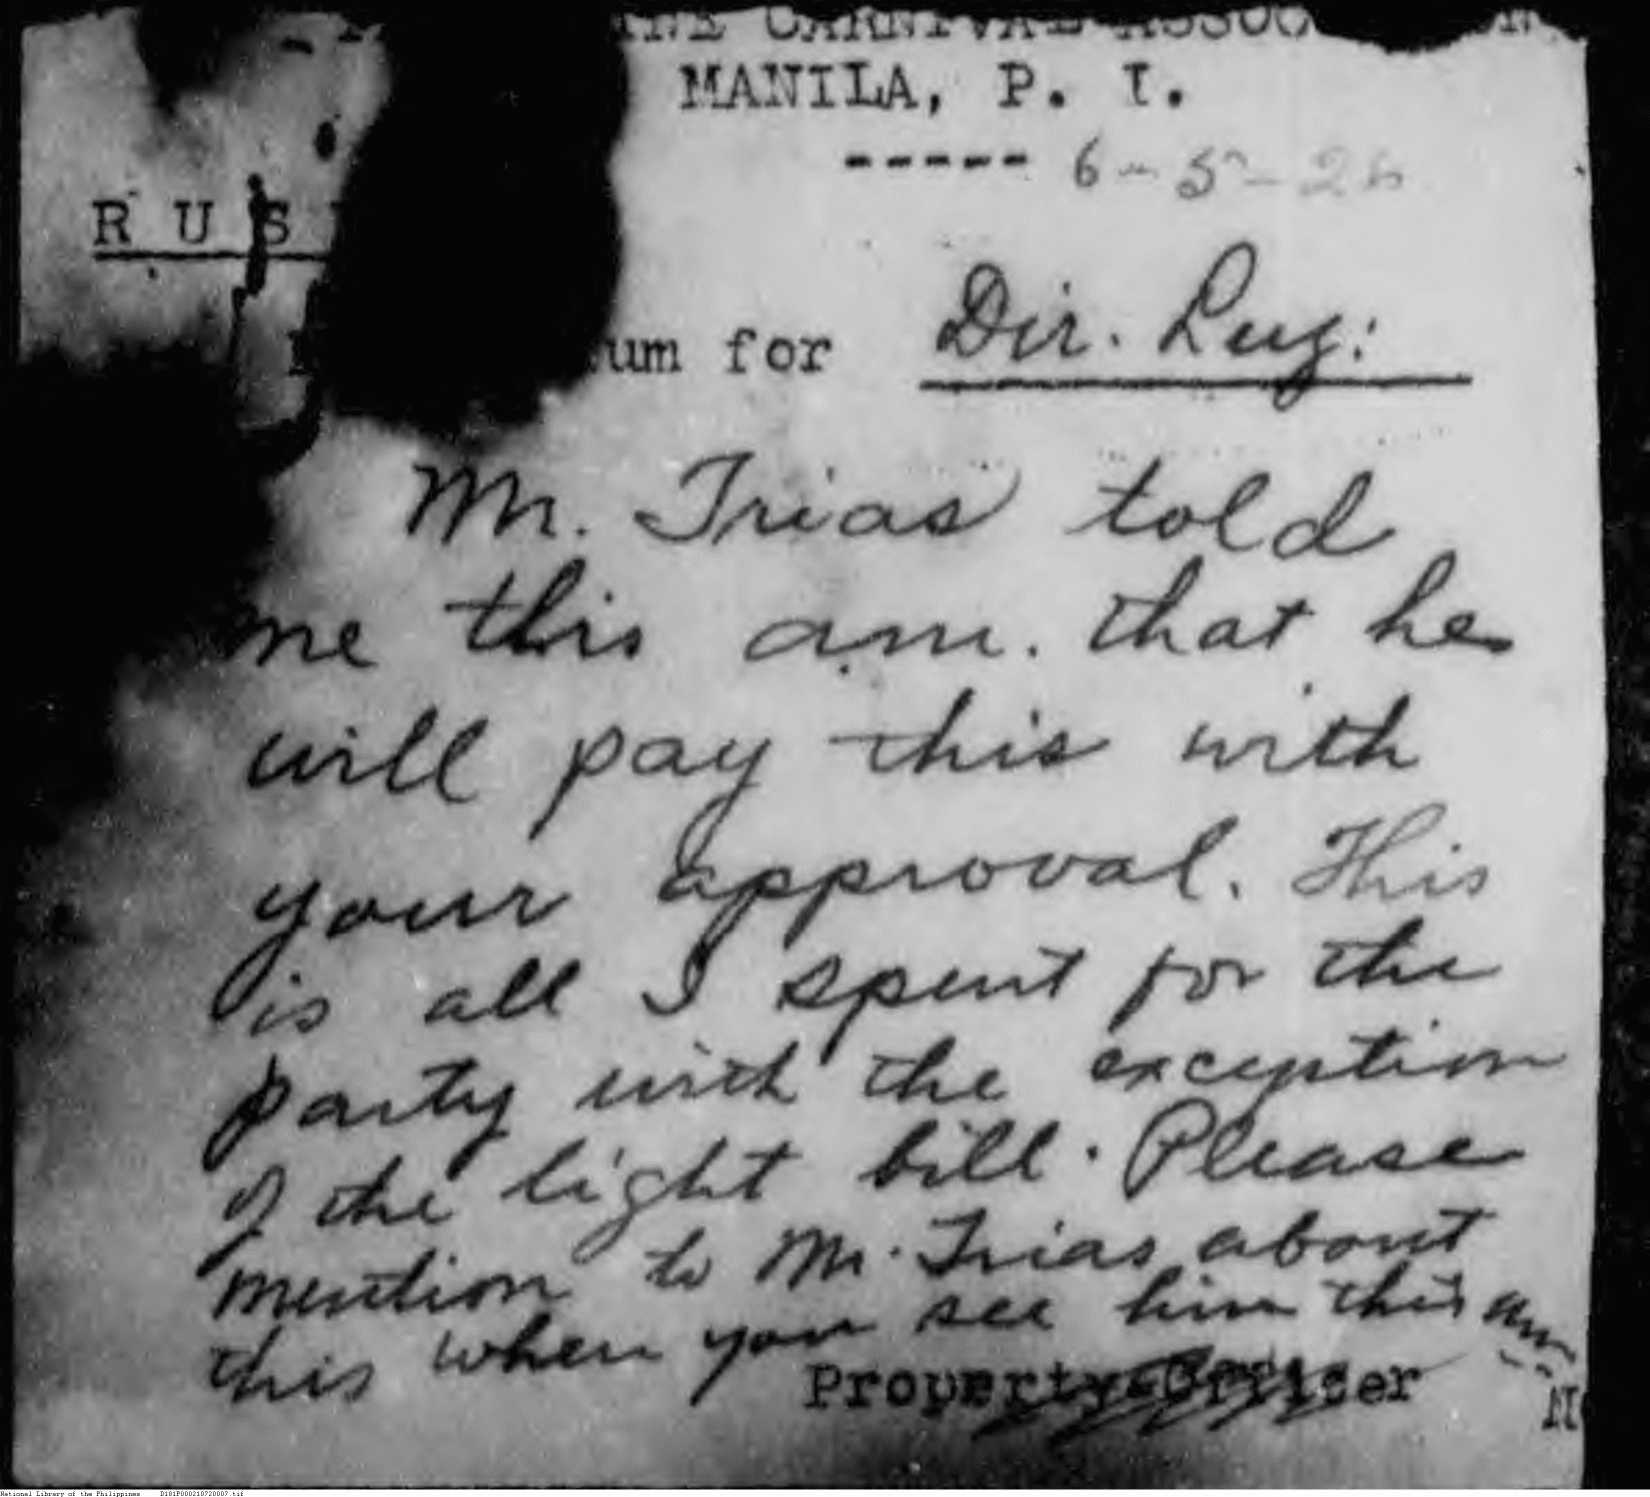 CARNIVAL
MANILA, P. I.
----- 6-5-26
R U S
um for Dir. Luz:
Mr. Trias told
me this am. that he
will pay this with
your approval. This
is all I spent for the
party with the exception
of the light bill. Please
mention to Mr. Trias about
this when you see him this am
Property Officer
National Library of the Philippines D101P000210720007.tif